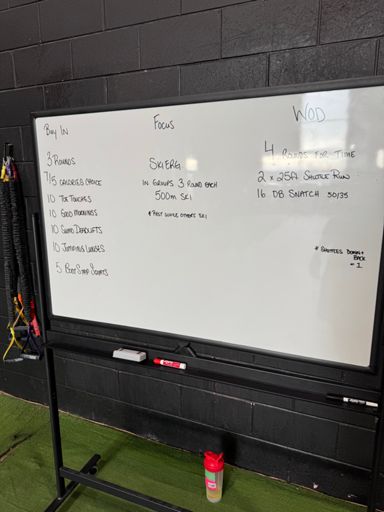 Buy In
3 Rounds
7/5 Calories Choice
10 Toe Touches
10 Good Mornings
10 Sumo Deadlifts
10 Jumping Lunges
5 Box Step
Focus
SkiErg
in groups 3 round each
500m Ski
* Rest while others ski
WOD
4 Rounds for Time
2 x 25ft Shuttle Run
16 DB Snatch 50/35
* Shuttles Down + Back = 1